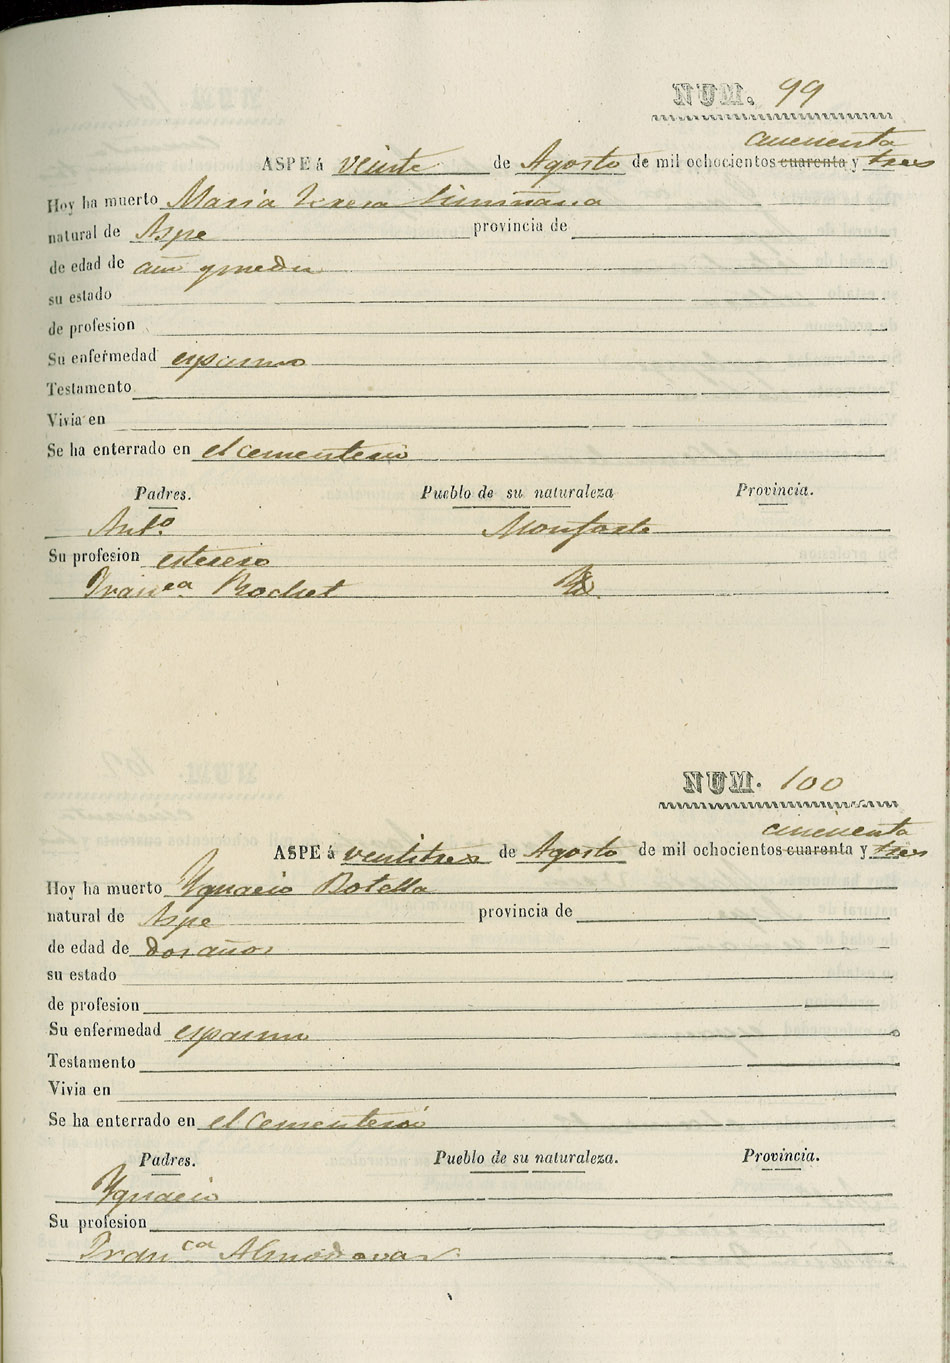 NUM. 99
cincuenta
ASPE á veinte de Agosto de mil ochocientos cuarenta y tres
Hoy ha muerto Maria Teresa Limiñana
natural de Aspe provincia de
de edad de año y medio
su estado
de profesion
Su enfermedad espasmo
Testamento
Vivia en
Se ha enterrado en el cementerio
Padres. Pueblo de su naturaleza Provincia.
Antº Monforte
Su profesion esterero
Franca Rochet Id.
NUM. 100
cincuenta
ASPE á ventitres de Agosto de mil ochocientos cuarenta y tres
Hoy ha muerto Ygnacio Botella
natural de Aspe provincia de
de edad de dos años
su estado
de profesion
Su enfermedad espasmo
Testamento
Vivia en
Se ha enterrado en el Cementerio
Padres. Pueblo de su naturaleza. Provincia.
Ygnacio
Su profesion
Franca Almodovar